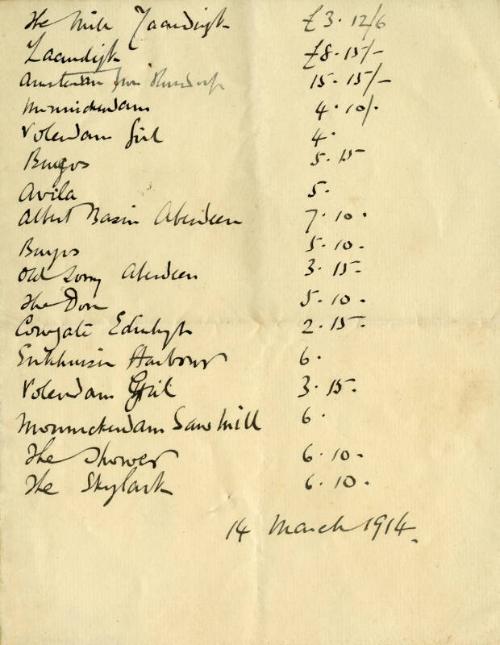 The Mill Zaandijk £3 · 12/6
Zaandijk £8 · 15/-
Amsterdam from 15 · 15/-
Monnickendam 4 · 10/-
Volendam Girl 4 ·
Burgos 5 · 15
Avila 5 ·
Albert Basin Aberdeen 7 · 10 ·
Burgos 5 · 10 ·
Old Aberdeen 3 · 15 ·
The Don 5 · 10 ·
Cowgate Edinbgh 2 · 15 ·
Enkhuisen Harbour 6 ·
Volendam Girl 3 · 15 ·
Monnickendam Saw Mill 6 ·
The Shower 6 · 10 ·
The Skylark 6 · 10 ·
14 March 1914.